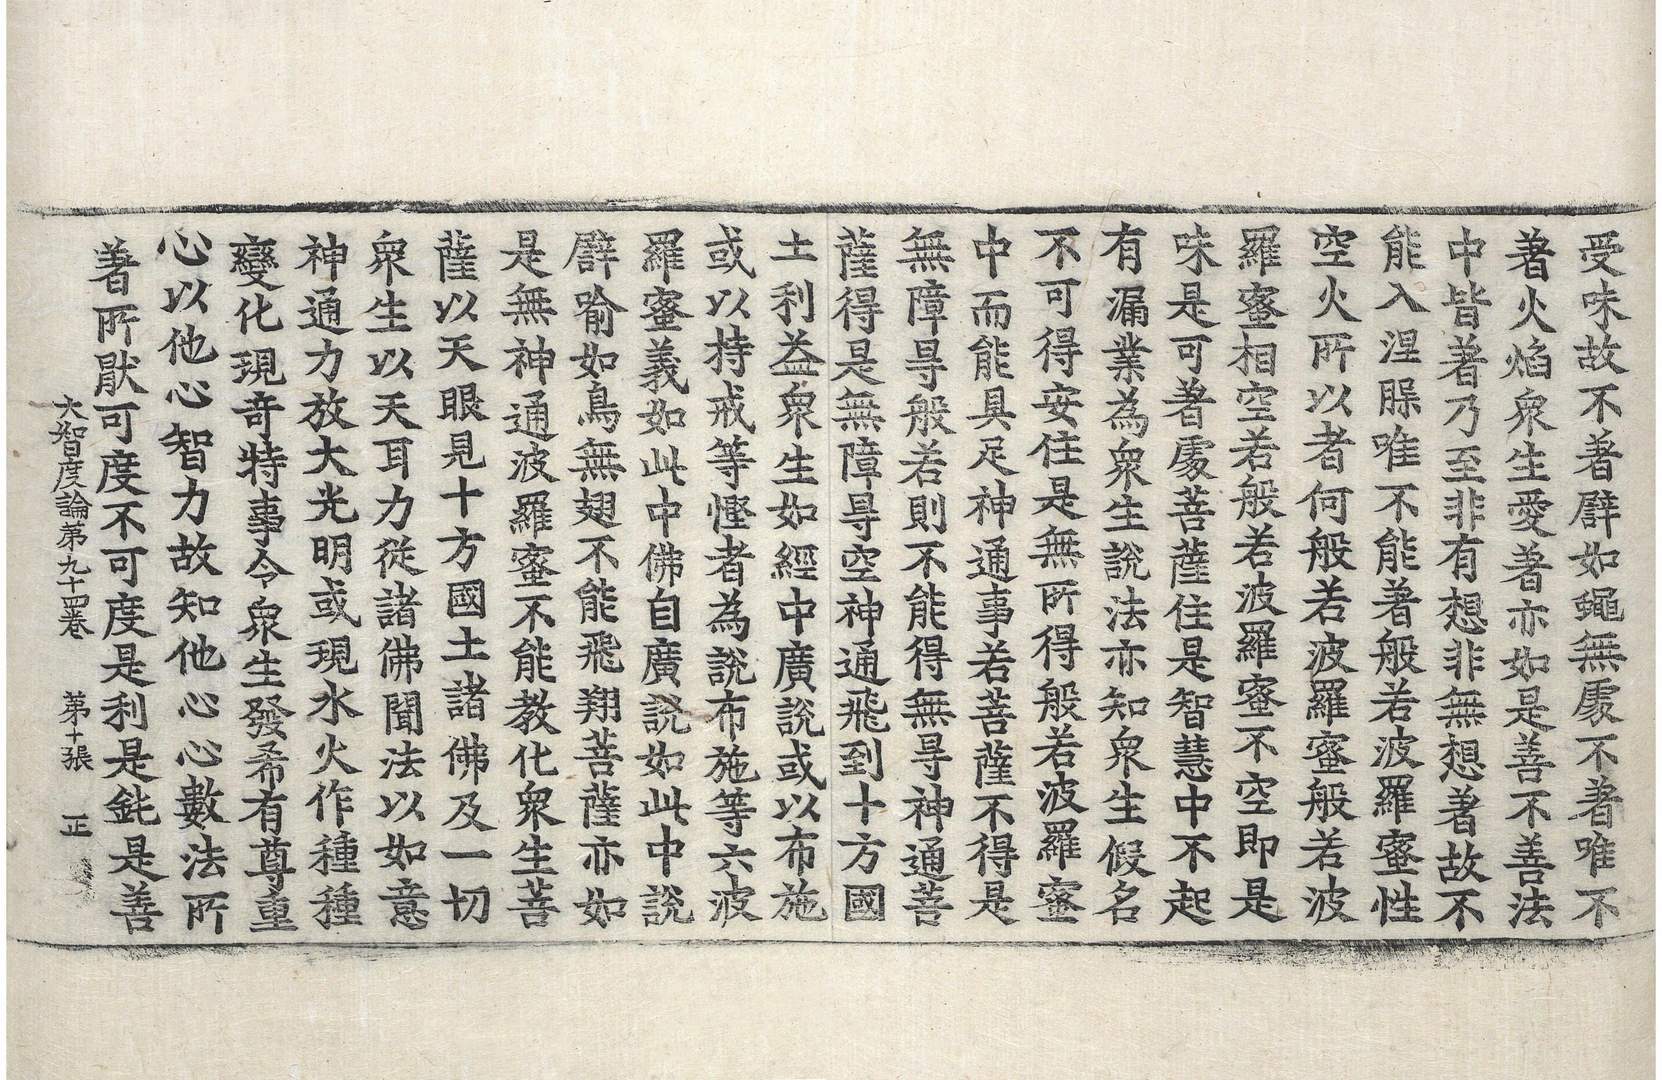 受味故不著譬如蠅無處不著唯不
著火焰衆生愛著亦如是善不善法
中皆著乃至非有想非無想著故不
能入涅槃唯不能著般若波羅蜜性
空火所以者何般若波羅蜜般若波
羅蜜相空若般若波羅蜜不空即是
味是可著處菩薩住是智慧中不起
有漏業為衆生說法亦知衆生假名
不可得安住是無所得般若波羅蜜
中而能具足神通事若菩薩不得是
無障㝵般若則不能得無㝵神通菩
薩得是無障㝵空神通飛到十方國
土利益衆生如經中廣說或以布施
或以持戒等慳者為說布施等六波
羅蜜義如此中佛自廣說如此中說
譬喻如鳥無翅不能飛翔菩薩亦如
是無神通波羅蜜不能教化衆生菩
薩以天眼見十方國土諸佛及一切
衆生以天耳力從諸佛聞法以如意
神通力放大光明或現水火作種種
變化現奇特事令衆生發希有尊重
心以他心智力故知他心心數法所
著所猒可度不可度是利是鈍是善
大智度論第九十四卷　第十張　正